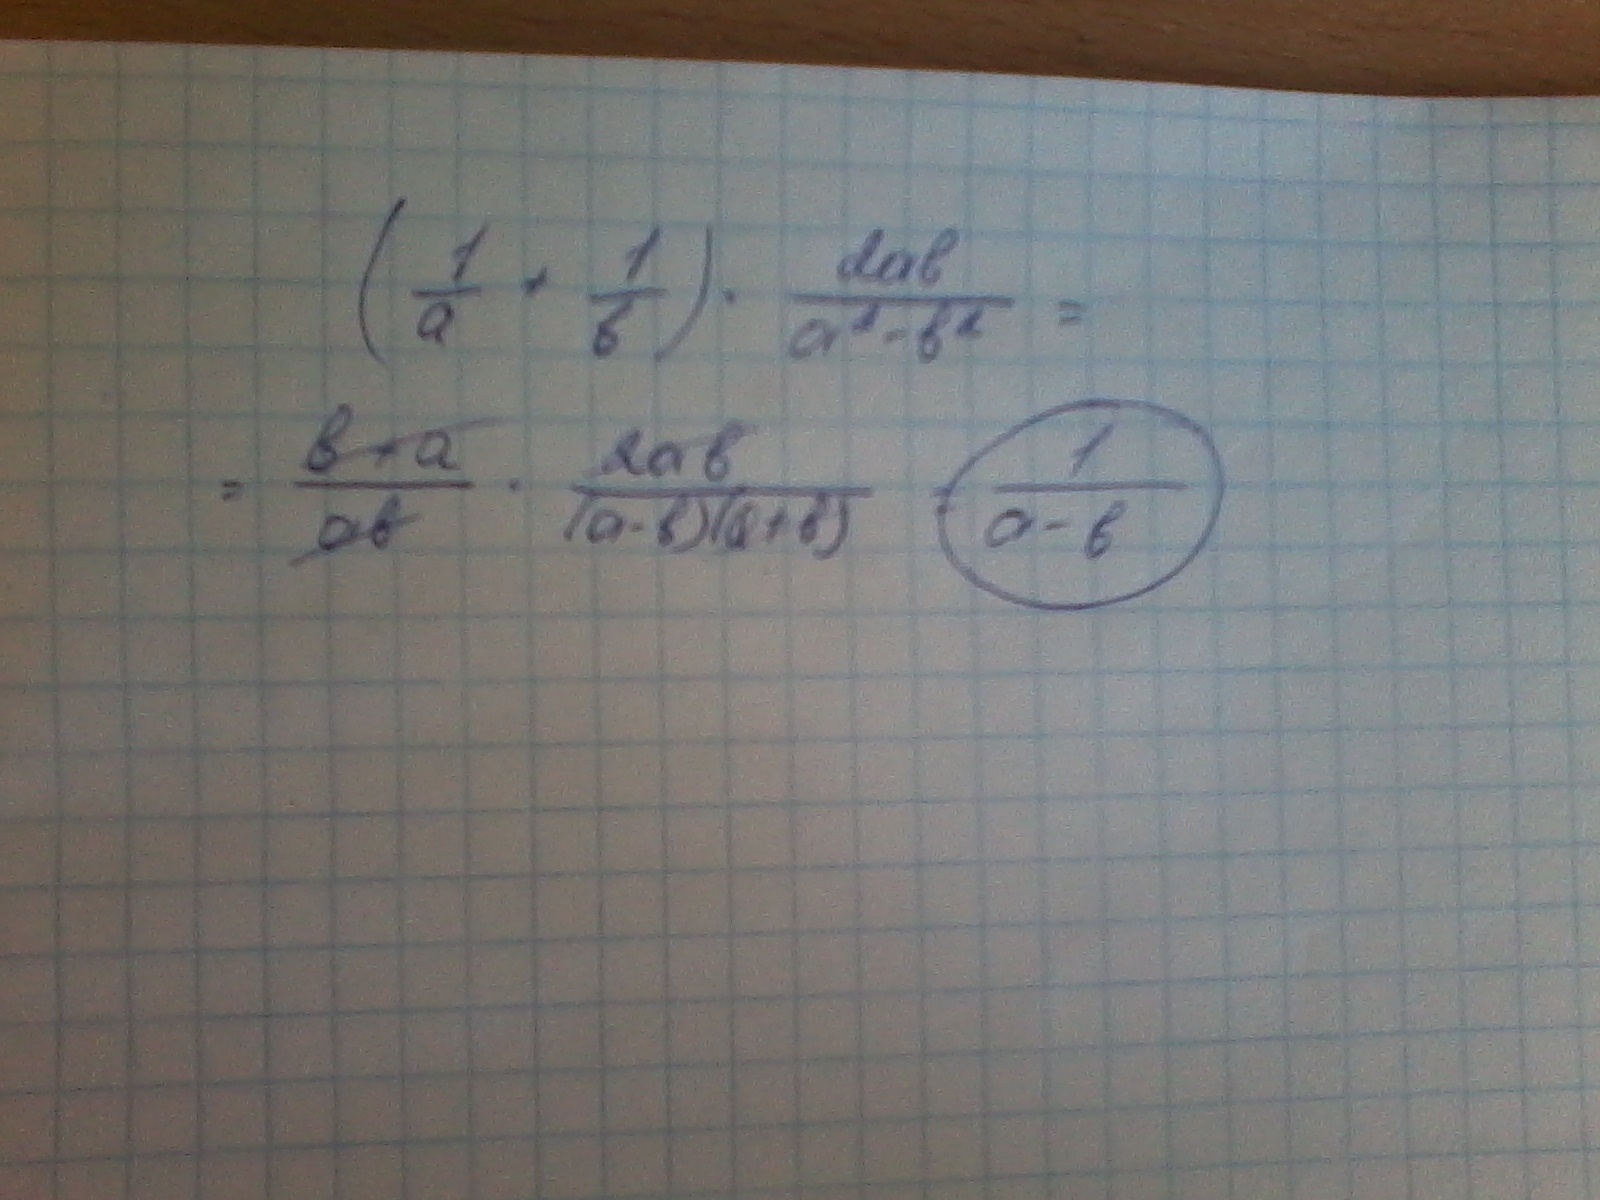 (1/a + 1/b) · 2ab/(a² - b²) =
= (b + a)/(ab) · 2ab/((a - b)(a + b)) = 1/(a - b)